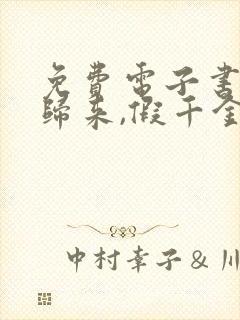 免費電子書
歸来,假千金
中村幸子&川